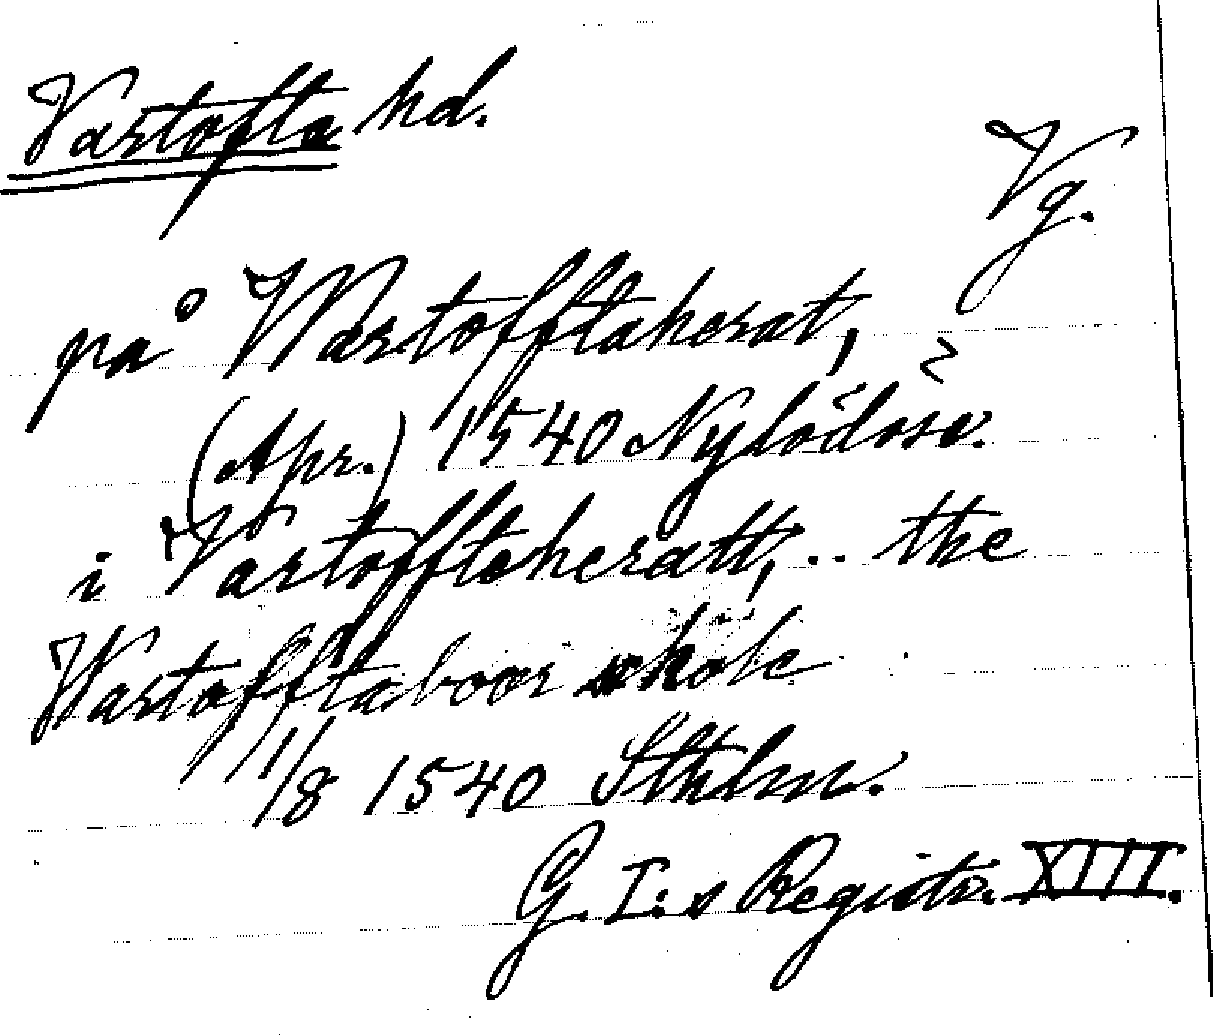 Vartofta hd.
Vg.
på Wartofftaherat,
(Apr.) 1540 Nylödose.
i Vartofftaheratt, .. the
Wartofftaboer skole
11/8 1540 Sthlm.
G. I:s Registr. XIII.